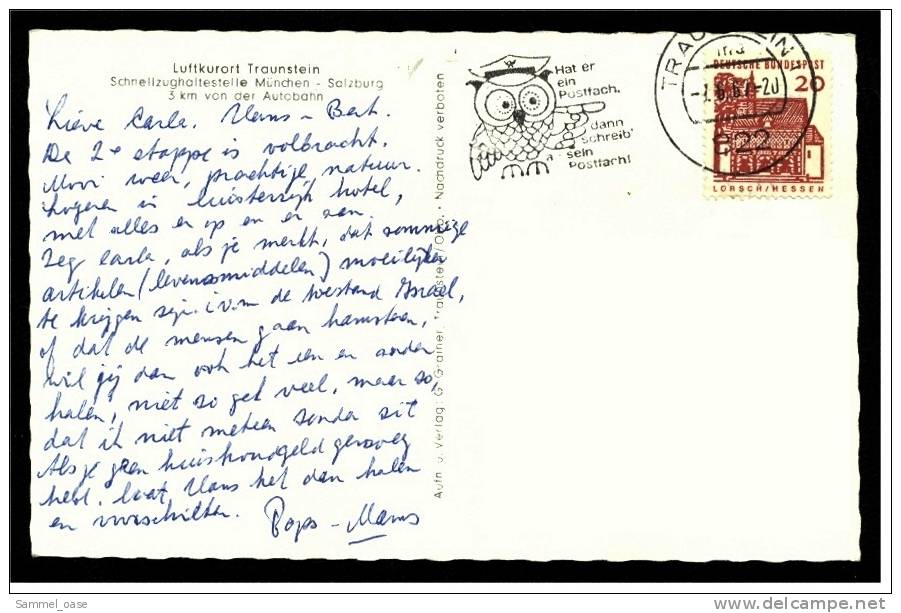 Luftkurort Traunstein
Schnellzughaltestelle München - Salzburg
3 km von der Autobahn
Lieve Carla. Hans - Bert.
De 2e etappe is volbracht.
Mooi weer, prachtige natuur.
logeren in luisterrijk hotel,
met alles er op en er aan.
Zeg Carla, als je merkt, dat sommige
artikelen (levensmiddelen) moeilijker
te krijgen zijn. i.v.m de toestand Israel,
of dat de mensen gaan hamsteren,
wil jij dan ook het een en ander
halen, niet so gek veel, maar so,
dat ik niet meteen sonder sit
Als je geen huishoudgeld genoeg
hebt. laat Hans het dan halen
en voorschieten. Paps - Mams
Aufn u. Verlag: G. Grainer, Traunstein/Obb. • Nachdruck verboten
Hat er
ein
Postfach,
dann
schreib'
sein
Postfach!
TRAUNSTEIN
822
DEUTSCHE BUNDESPOST
20
LORSCH/HESSEN
Sammel_oase
www.delcampe.net